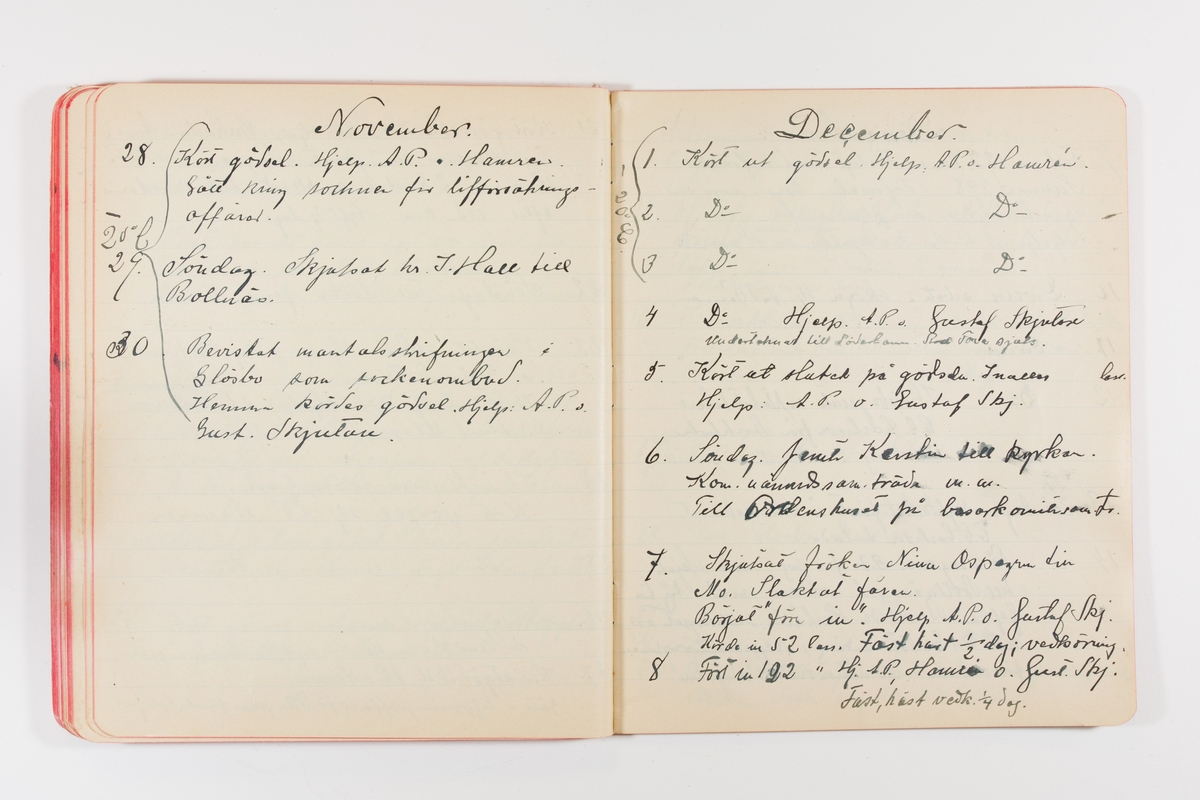 November.
28. Kört gödsel. Hjelp. A.P. o. Hamrén.
Gått kring socknen för lifförsäkrings-
affärer.
29. Söndag. Skjutsat hr. J. Hall till
Bollnäs.
30. Bevistat mantalsskrifningen i
Glösbo som sockenombud.
Hemma kördes gödsel. Hjelp: A.P. o.
Gust. Skjutare.
December.
1. Kört ut gödsel. Hjelp. A.P. o. Hamrén.
2. Do Do
3 Do Do
4 Do Hjelp. A.P. o. Gustaf Skjutare
till Söderhamn
5. Kört ut slutet på gödseln. Inalles lass.
Hjelp: A.P. o. Gustaf Skj.
6. Söndag. Kerstin till kyrkan.
Kom. nämndssam.träde m.m.
Till Ordenshuset på basarkomitésamtr.
7. Skjutsat fröken Nina
Mo. Slaktat fåren.
Börjat "föra in". Hjelp A.P. o. Gustaf Skj.
Körde in 52 lass. Fäst häst 1/2 dag; vedkörning.
8 Fört in 192 " Hj. A.P., Hamrén o. Gust. Skj.
Fäst, häst vedk. 1/4 dag.